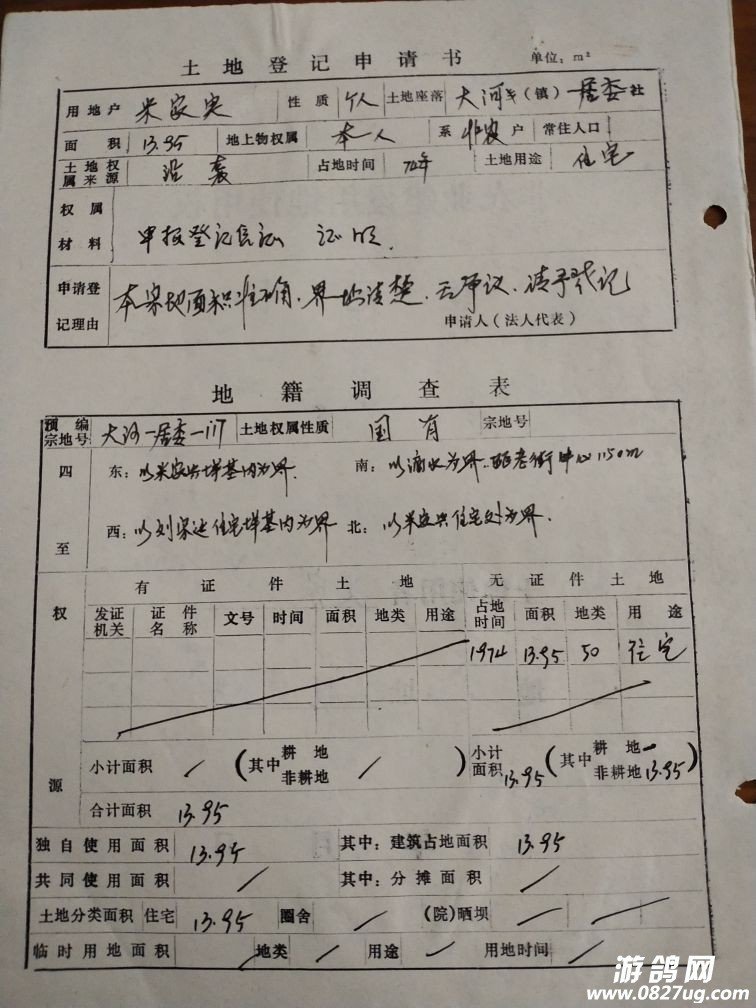 土地登记申请书 单位：m²
用地户 米家宪 性质 个人 土地座落 大河乡（镇）居委社
面积 13.95 地上物权属 本人 系 非农 户 常住人口
土地权属来源 沿袭 占地时间 74年 土地用途 住宅
权属材料 申报登记凭证 证明.
申请登记理由 本宗地面积准确、界址清楚、无争议、请予登记
申请人（法人代表）
地籍调查表
预编宗地号 大河-居委-117 土地权属性质 国有 宗地号
四至 东：以米家 墙基内为界. 南：以滴水为界. 老街中心 150m
西：以刘 住宅墙基内为界 北：以米家兴住宅 为界.
权源 有证件土地 无证件土地
发证机关 证件名称 文号 时间 面积 地类 用途 占地时间 面积 地类 用途
1974 13.95 50 住宅
小计面积 / （其中 耕地 非耕地 / ） 小计面积 13.95 （其中 耕地 - 非耕地 13.95）
合计面积 13.95
独自使用面积 13.95 其中：建筑占地面积 13.95
共同使用面积 / 其中：分摊面积 /
土地分类面积 住宅 13.95 圈舍 / （院）晒坝 / /
临时用地面积 / 地类 / 用途 / 用地时间 /
游鸽网
www.0827ug.com